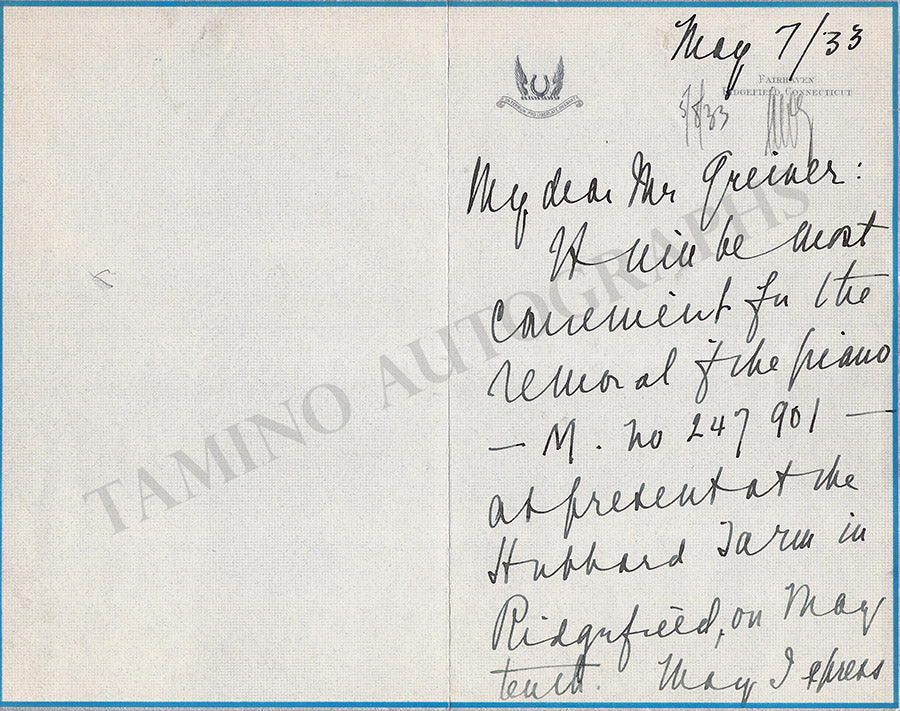 May 7/33
FAIRHAVEN
RIDGEFIELD, CONNECTICUT
5/8/33
My dear Mr Greiner:
It will be most
convenient for the
removal of the piano
— M. no 247901 —
at present at the
Hubbard Farm in
Ridgefield, on May
tenth. May I express
TAMINO AUTOGRAPHS